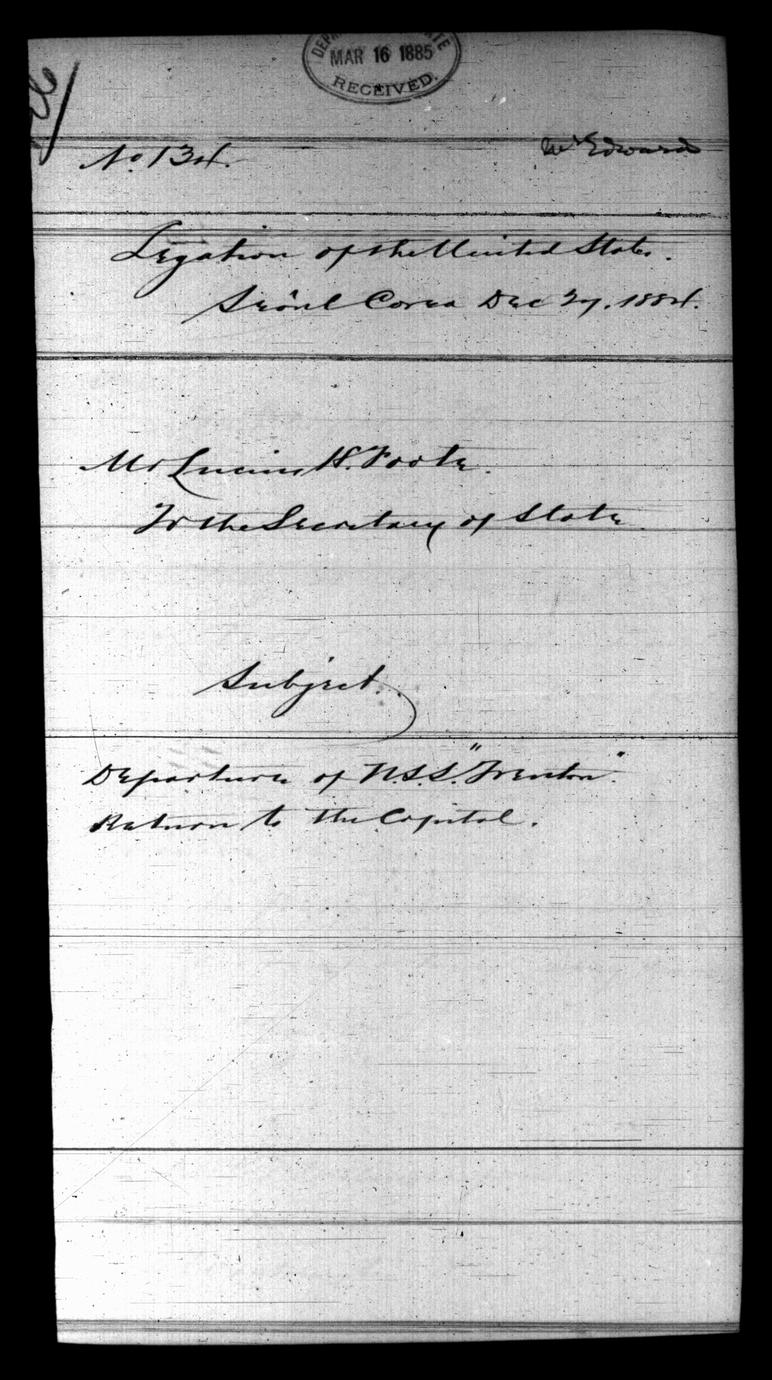 MAR 16 1885
RECEIVED.
No 134.
Mr Edwards
Legation of the United States.
Seöul Corea Dec 27, 1884.
Mr Lucius H. Foote.
To the Secretary of State
Subject.
Departure of U.S.S. "Trenton".
Return to the Capital.